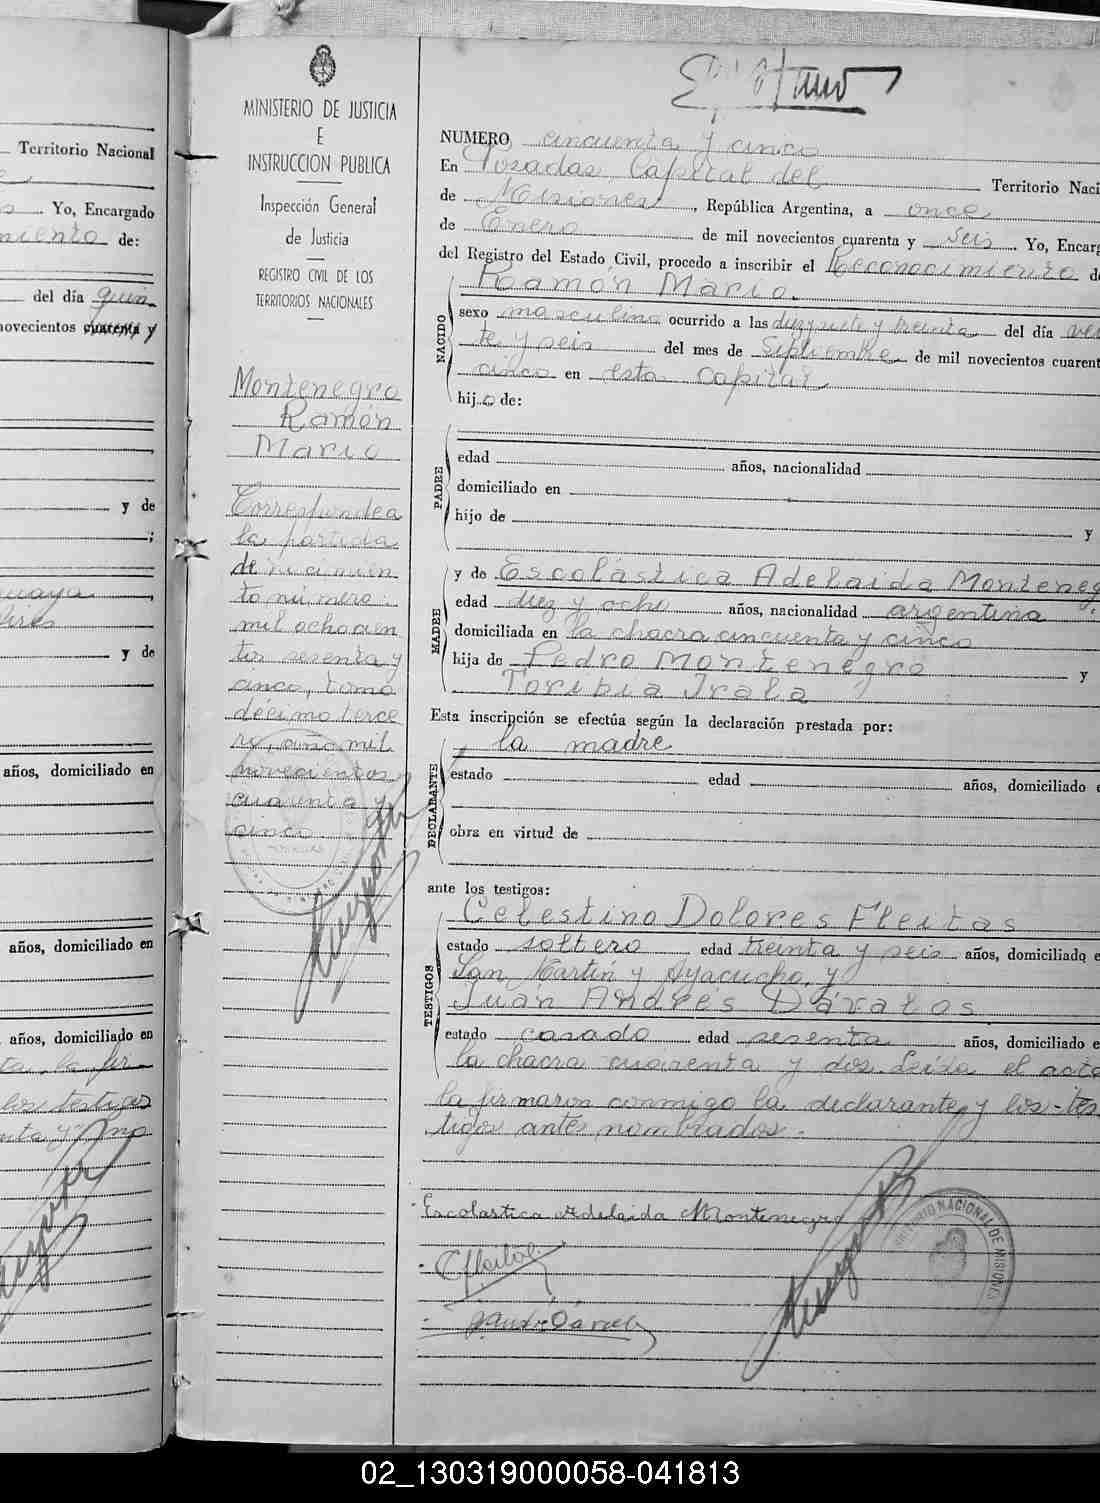 Territorio Nacional
Yo, Encargado
de:
del día quin
novecientos cuarenta y
y de
;
uaya,
y de
años, domiciliado en
años, domiciliado en
años, domiciliado en
los testigos
MINISTERIO DE JUSTICIA
E
INSTRUCCION PUBLICA
Inspección General
de Justicia
REGISTRO CIVIL DE LOS
TERRITORIOS NACIONALES
Montenegro
Ramón
Mario
Corresponde a
la partida
de nacimien
to número:
mil ochocien
tos sesenta y
cinco, tomo
décimo terce
ro, año mil
novecientos
cuarenta y
cinco
NUMERO cincuenta y cinco
En Posadas, Capital del Territorio Naci
de Misiones, República Argentina, a once
de Enero de mil novecientos cuarenta y seis. Yo, Encarg
del Registro del Estado Civil, procedo a inscribir el Reconocimiento d
NACIDO
Ramón Mario.
sexo masculino ocurrido a las diez y siete y treinta del día vein
te y seis del mes de Septiembre de mil novecientos cuarent
cinco en esta capital
hijo de:
PADRE
edad años, nacionalidad
domiciliado en
hijo de y
MADRE
y de Escolástica Adelaida Monteneg
edad diez y ocho años, nacionalidad argentina
domiciliada en la chacra cincuenta y cinco
hija de Pedro Montenegro y
Toribia Irala
Esta inscripción se efectúa según la declaración prestada por:
DECLARANTE
la madre
estado edad años, domiciliado e
obra en virtud de
ante los testigos:
TESTIGOS
Celestino Dolores Fleitas
estado soltero edad treinta y seis años, domiciliado e
San Martín y Ayacucho, y
Juan Andrés Dávalos
estado casado edad sesenta años, domiciliado e
la chacra cuarenta y dos. Leída el acta
la firmaron conmigo la declarante y los tes
tigos antes nombrados.
Escolastica Adelaida Montenegro
NACIONAL DE MISIONES
02_130319000058-041813